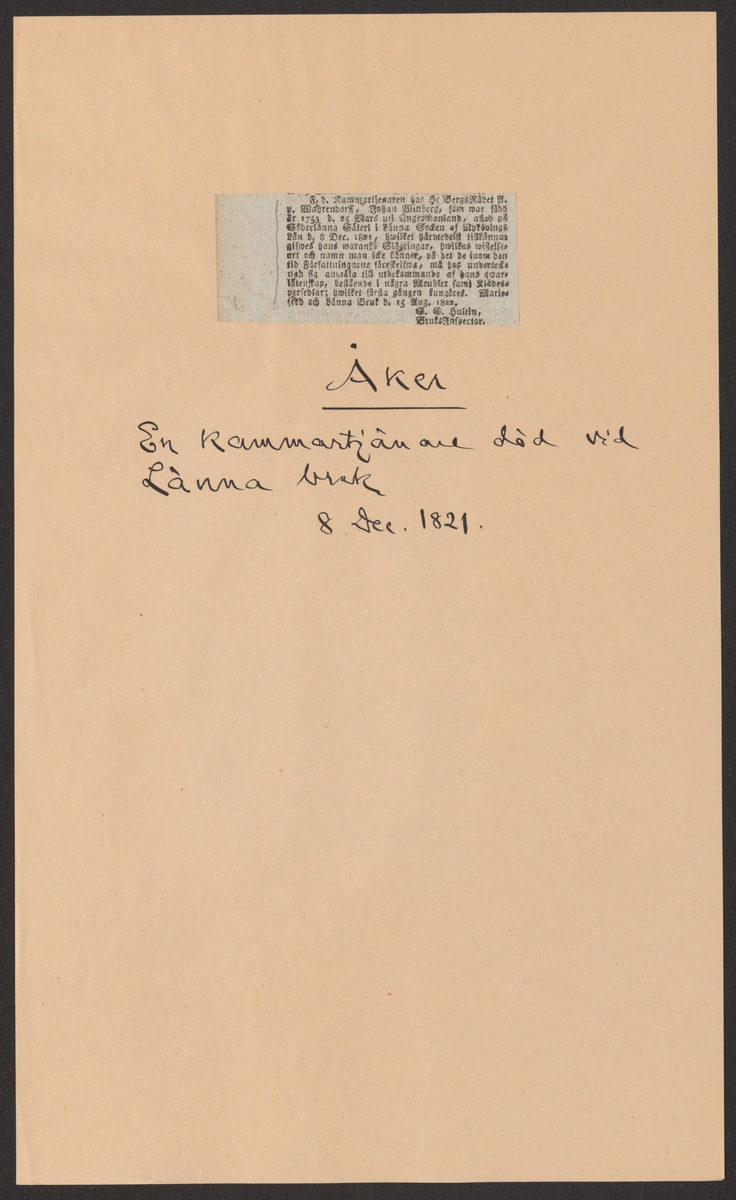 F. d. Kammartjenaren hos Hr BergsRådet A.
p. Wahrendorff, Johan Winberg, som war född
år 1753 d. 25 Mars uti Ångermanland, afled på
Söderlänna Säteri i Länna Socken af Nyköpings
Län d. 8 Dec. 1821, hwilket härmedelst tillkännas
gifwes hans warande Slägtingar, hwilkas wistelse-
ort och namn man icke känner, på det de inom den
tid Författningarne föreskrifwa, må hos underteck-
nad sig anmäla till utbekommande af hans qwar-
låtenskap, bestående i några Meubler samt Klädes-
persedlar; hwilket första gången kungöres. Marie-
fred och Länna Bruk d. 15 Aug. 1822.
Hultin,
BruksInspector.
Åker
En kammartjänare död vid
Länna bruk
8 Dec. 1821.